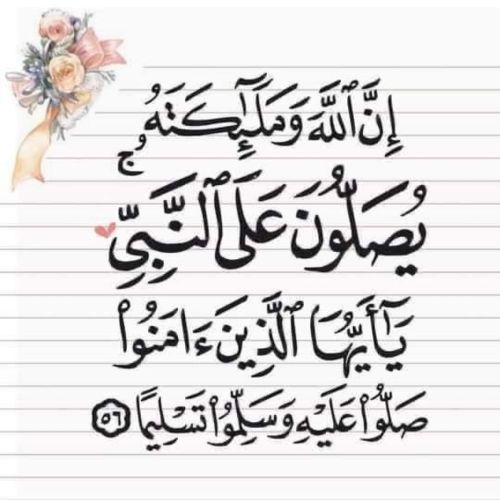 إِنَّ ٱللَّهَ وَمَلَٰٓئِكَتَهُۥ
يُصَلُّونَ عَلَى ٱلنَّبِيِّۚ
يَٰٓأَيُّهَا ٱلَّذِينَ ءَامَنُوا۟
صَلُّوا۟ عَلَيْهِ وَسَلِّمُوا۟ تَسْلِيمًا ٥٦